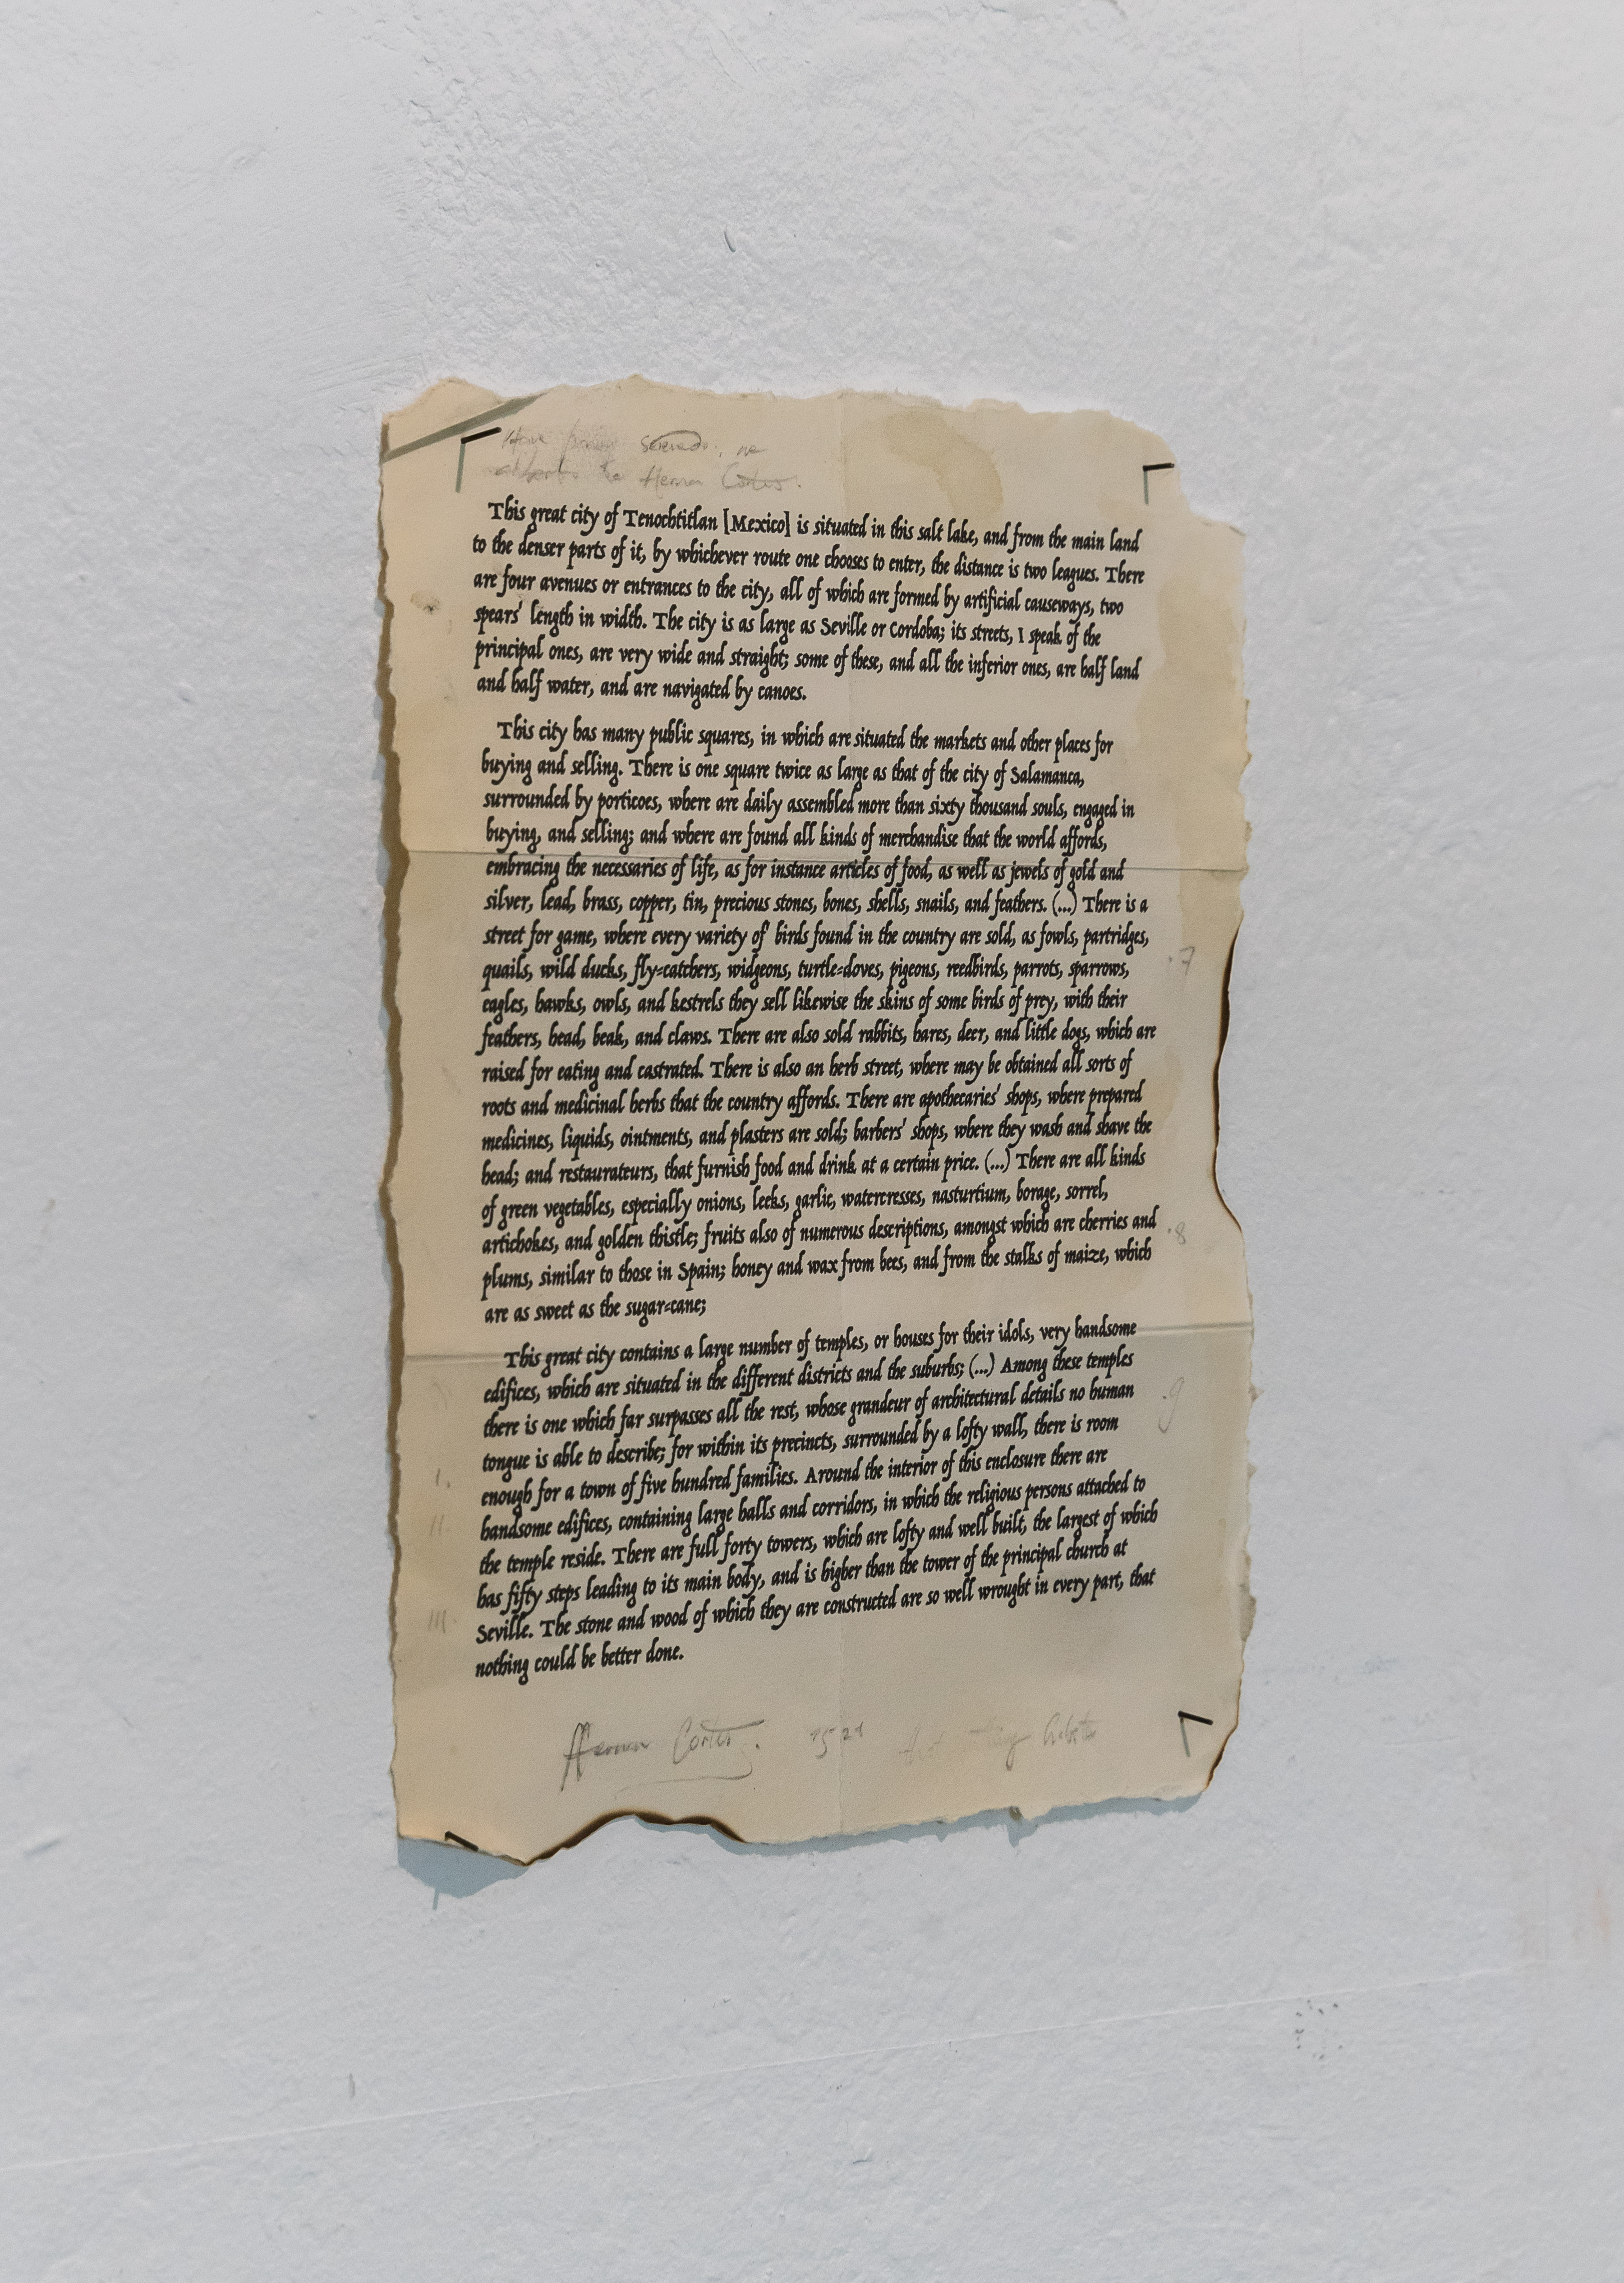 Hernan Cortes.
This great city of Tenochtitlan [Mexico] is situated in this salt lake, and from the main land
to the denser parts of it, by whichever route one chooses to enter, the distance is two leagues. There
are four avenues or entrances to the city, all of which are formed by artificial causeways, two
spears' length in width. The city is as large as Seville or Cordoba; its streets, I speak of the
principal ones, are very wide and straight; some of these, and all the inferior ones, are half land
and half water, and are navigated by canoes.
This city has many public squares, in which are situated the markets and other places for
buying and selling. There is one square twice as large as that of the city of Salamanca,
surrounded by porticoes, where are daily assembled more than sixty thousand souls, engaged in
buying, and selling; and where are found all kinds of merchandise that the world affords,
embracing the necessaries of life, as for instance articles of food, as well as jewels of gold and
silver, lead, brass, copper, tin, precious stones, bones, shells, snails, and feathers. (...) There is a
street for game, where every variety of birds found in the country are sold, as fowls, partridges,
quails, wild ducks, fly=catchers, widgeons, turtle=doves, pigeons, reedbirds, parrots, sparrows,
.7
eagles, hawks, owls, and kestrels they sell likewise the skins of some birds of prey, with their
feathers, head, beak, and claws. There are also sold rabbits, hares, deer, and little dogs, which are
raised for eating and castrated. There is also an herb street, where may be obtained all sorts of
roots and medicinal herbs that the country affords. There are apothecaries' shops, where prepared
medicines, liquids, ointments, and plasters are sold; barbers' shops, where they wash and shave the
head; and restaurateurs, that furnish food and drink at a certain price. (...) There are all kinds
of green vegetables, especially onions, leeks, garlic, watercresses, nasturtium, borage, sorrel,
artichokes, and golden thistle; fruits also of numerous descriptions, amongst which are cherries and
.8
plums, similar to those in Spain; honey and wax from bees, and from the stalks of maize, which
are as sweet as the sugar=cane;
This great city contains a large number of temples, or houses for their idols, very handsome
edifices, which are situated in the different districts and the suburbs; (...) Among these temples
there is one which far surpasses all the rest, whose grandeur of architectural details no human
.9
tongue is able to describe; for within its precincts, surrounded by a lofty wall, there is room
enough for a town of five hundred families. Around the interior of this enclosure there are
I.
handsome edifices, containing large halls and corridors, in which the religious persons attached to
II.
the temple reside. There are full forty towers, which are lofty and well built, the largest of which
has fifty steps leading to its main body, and is higher than the tower of the principal church at
III.
Seville. The stone and wood of which they are constructed are so well wrought in every part, that
nothing could be better done.
Hernan Cortes. 1521